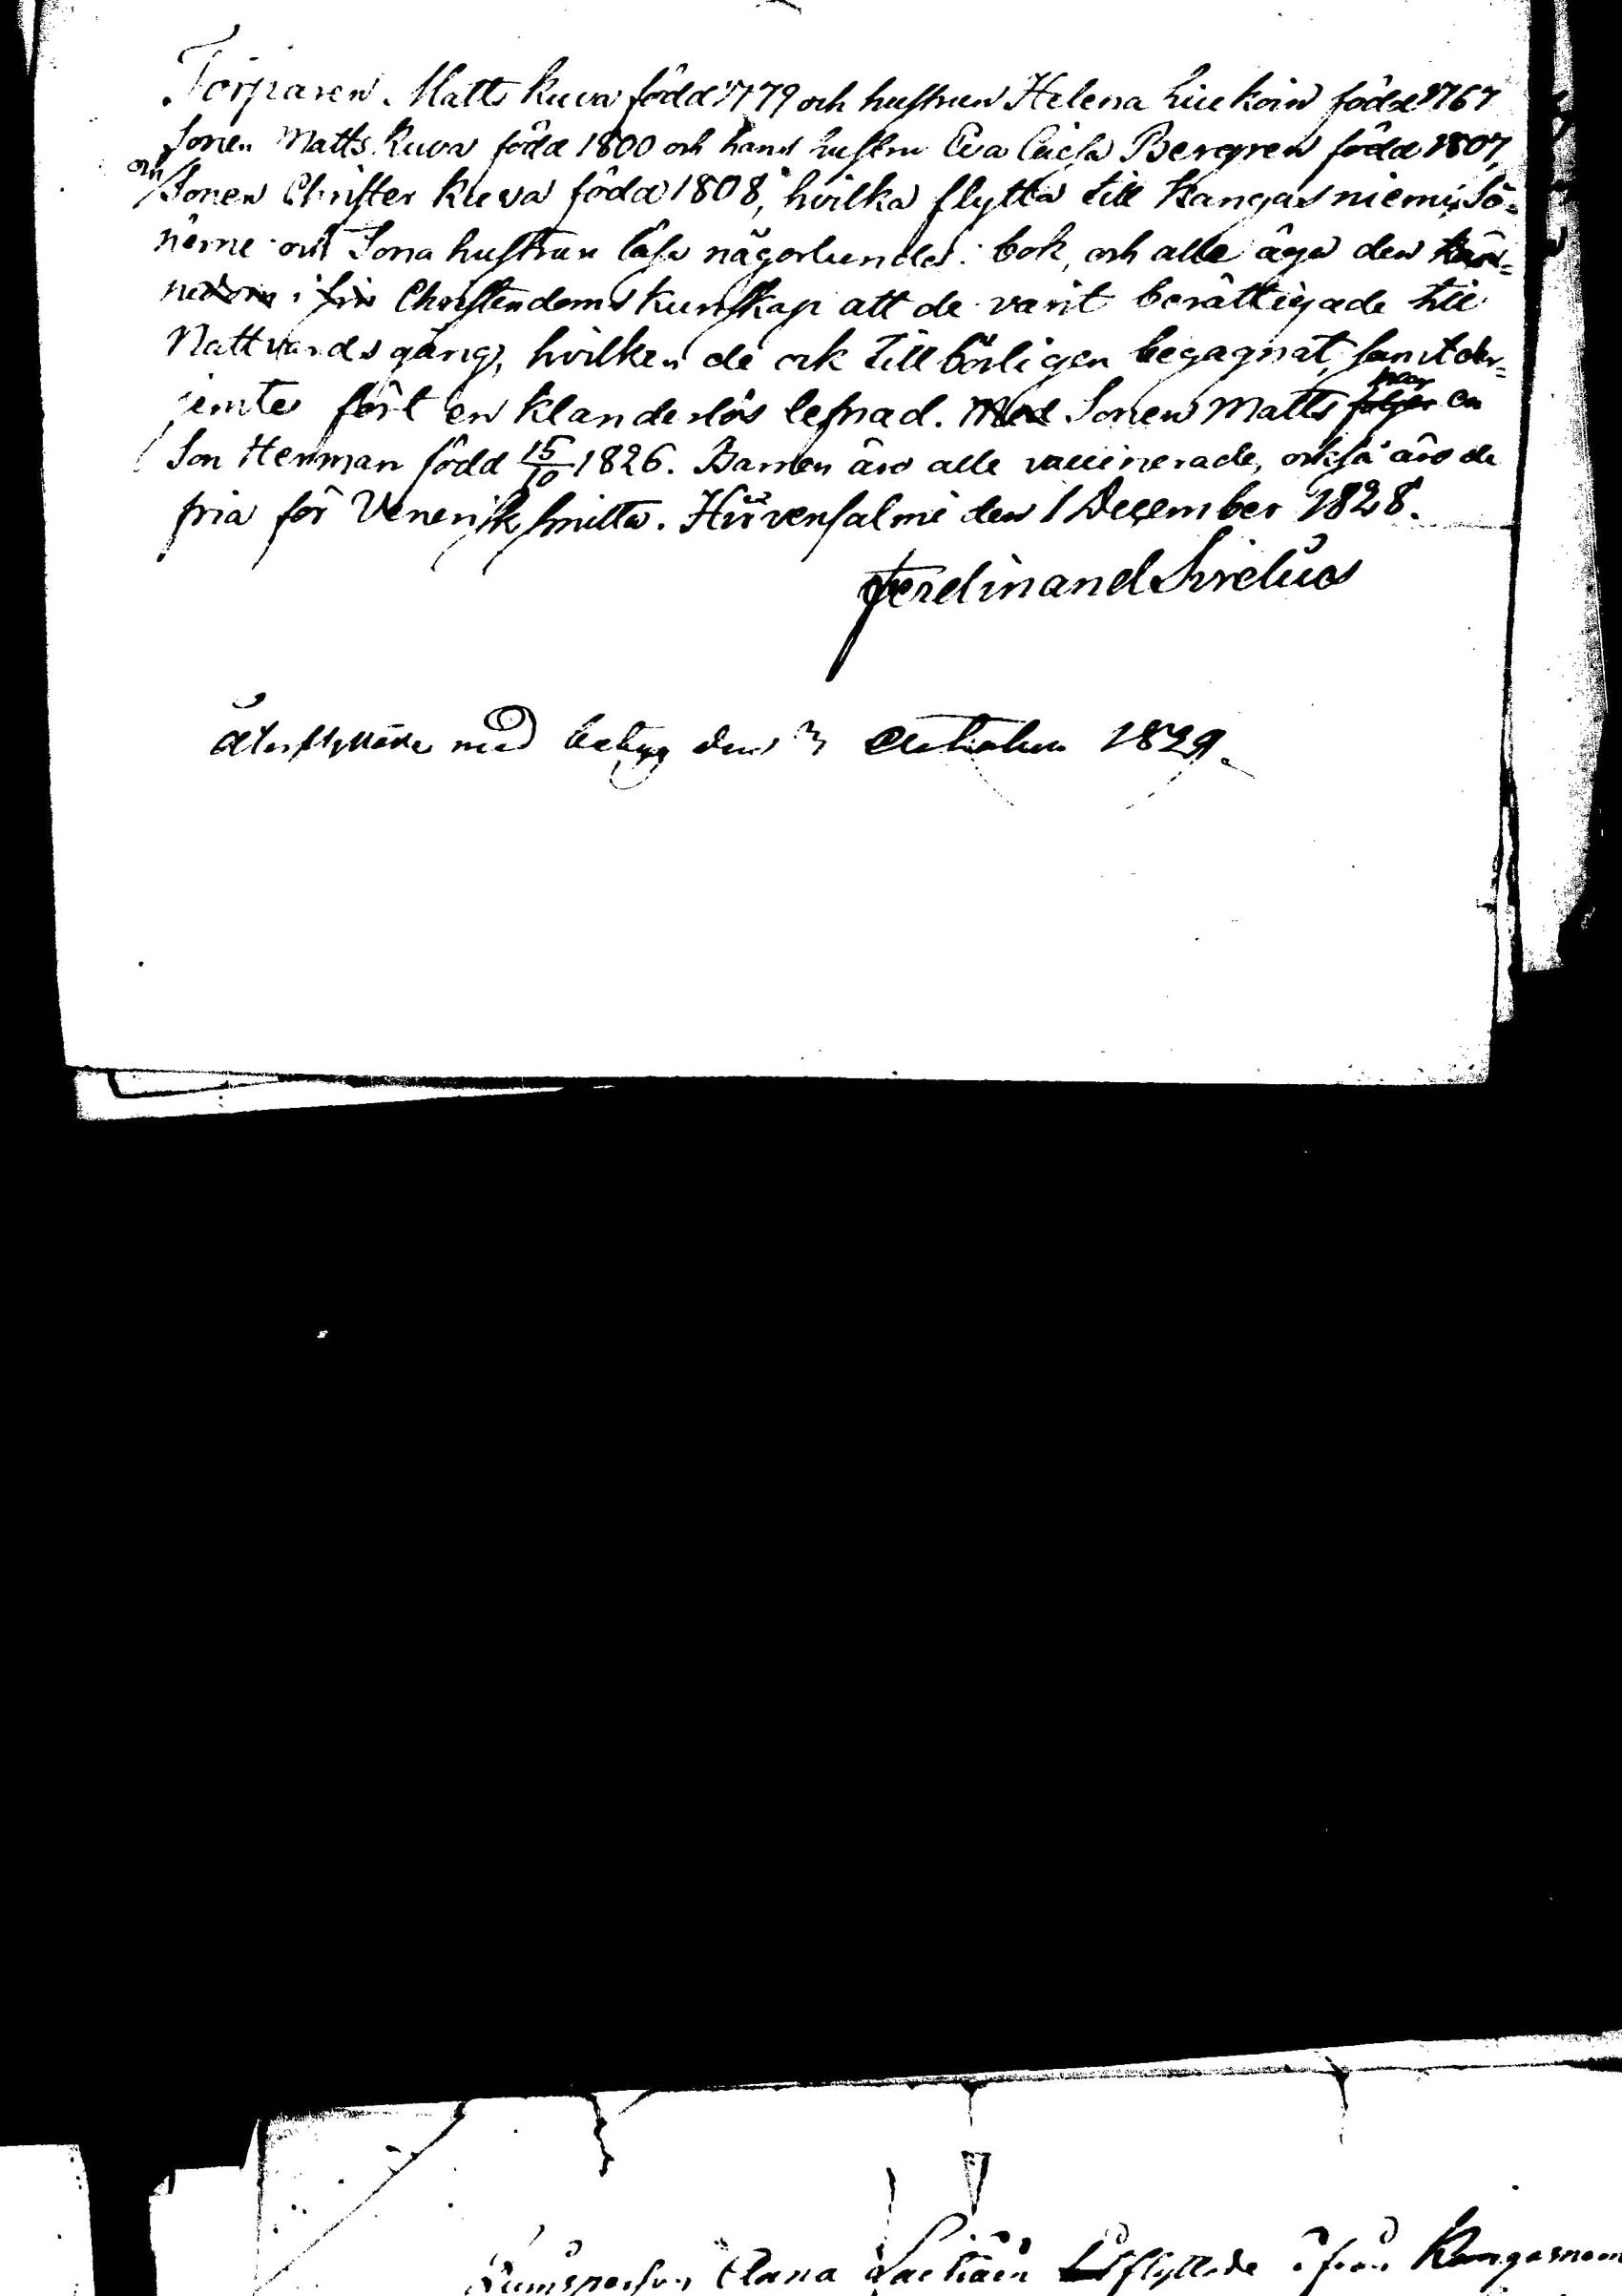 Torparen Matts Kuva född 1779 och hustrun Helena Liukoin född 1767
Sonen Matts Kuva född 1800 och hans hustru Eva Caisa Bergren född 1807,
och Sonen Christer Kuva född 1808, hvilka flytta till Kangasniemi, Sö-
nerne och Sona hustrun läsa någorlunda i bok, och alla äga den kän-
nedom i sin Christendoms kunskap att de varit berättigade till
Nattvards gång, hvilken de ock tillbörligen begagnat, samt der-
jemte fört en klanderlös lefnad. Med Sonen Matts följer har en
Son Herman född 15/10 1826. Barnen äro alla vaccinerade, också äro de
fria för Venerisk smitta. Hirvensalmi den 1 December 1828.
Ferdinand Sirelius
Återflyttade med betyg den 3 October 1829.
Anna utflyttade ifrån